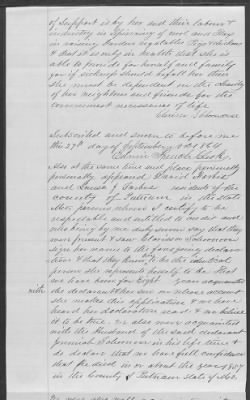 of support is by her and their labour &
industry in spinning of wool and flax
in raising garden vegetables Pigs chickens
& that it is only in health that she is
able to provide for herself and family
you if sickness should befall her then
she must be dependent on the charity
of her neighbors and friends for the
commonest necessaries of life
Solomon
Subscribed and sworn to before me
the 27th day of September
Clerk
Also at the same time and place personally
personally appeared David Forbes
and Louisa J Forbes residents of the
County of Putnam in the state
persons whom I certify to be
respectable and entitled to credit and
who being by me duly sworn say that they
were present & saw Solomon
sign her name to the foregoing declaration
& that they know her to be the identical
person she represents herself to be that
we have been for eight years acquainted
with she declarant & on whose account
she makes this application & we have
heard her declaration read & we believe
it to be true. we also were acquainted
with the Husband of the said declarant
Jeremiah Solomon in his life time &
do declare that we have full confidence
that he died in or about the year 1857
in the County of Putnam State of Mo.